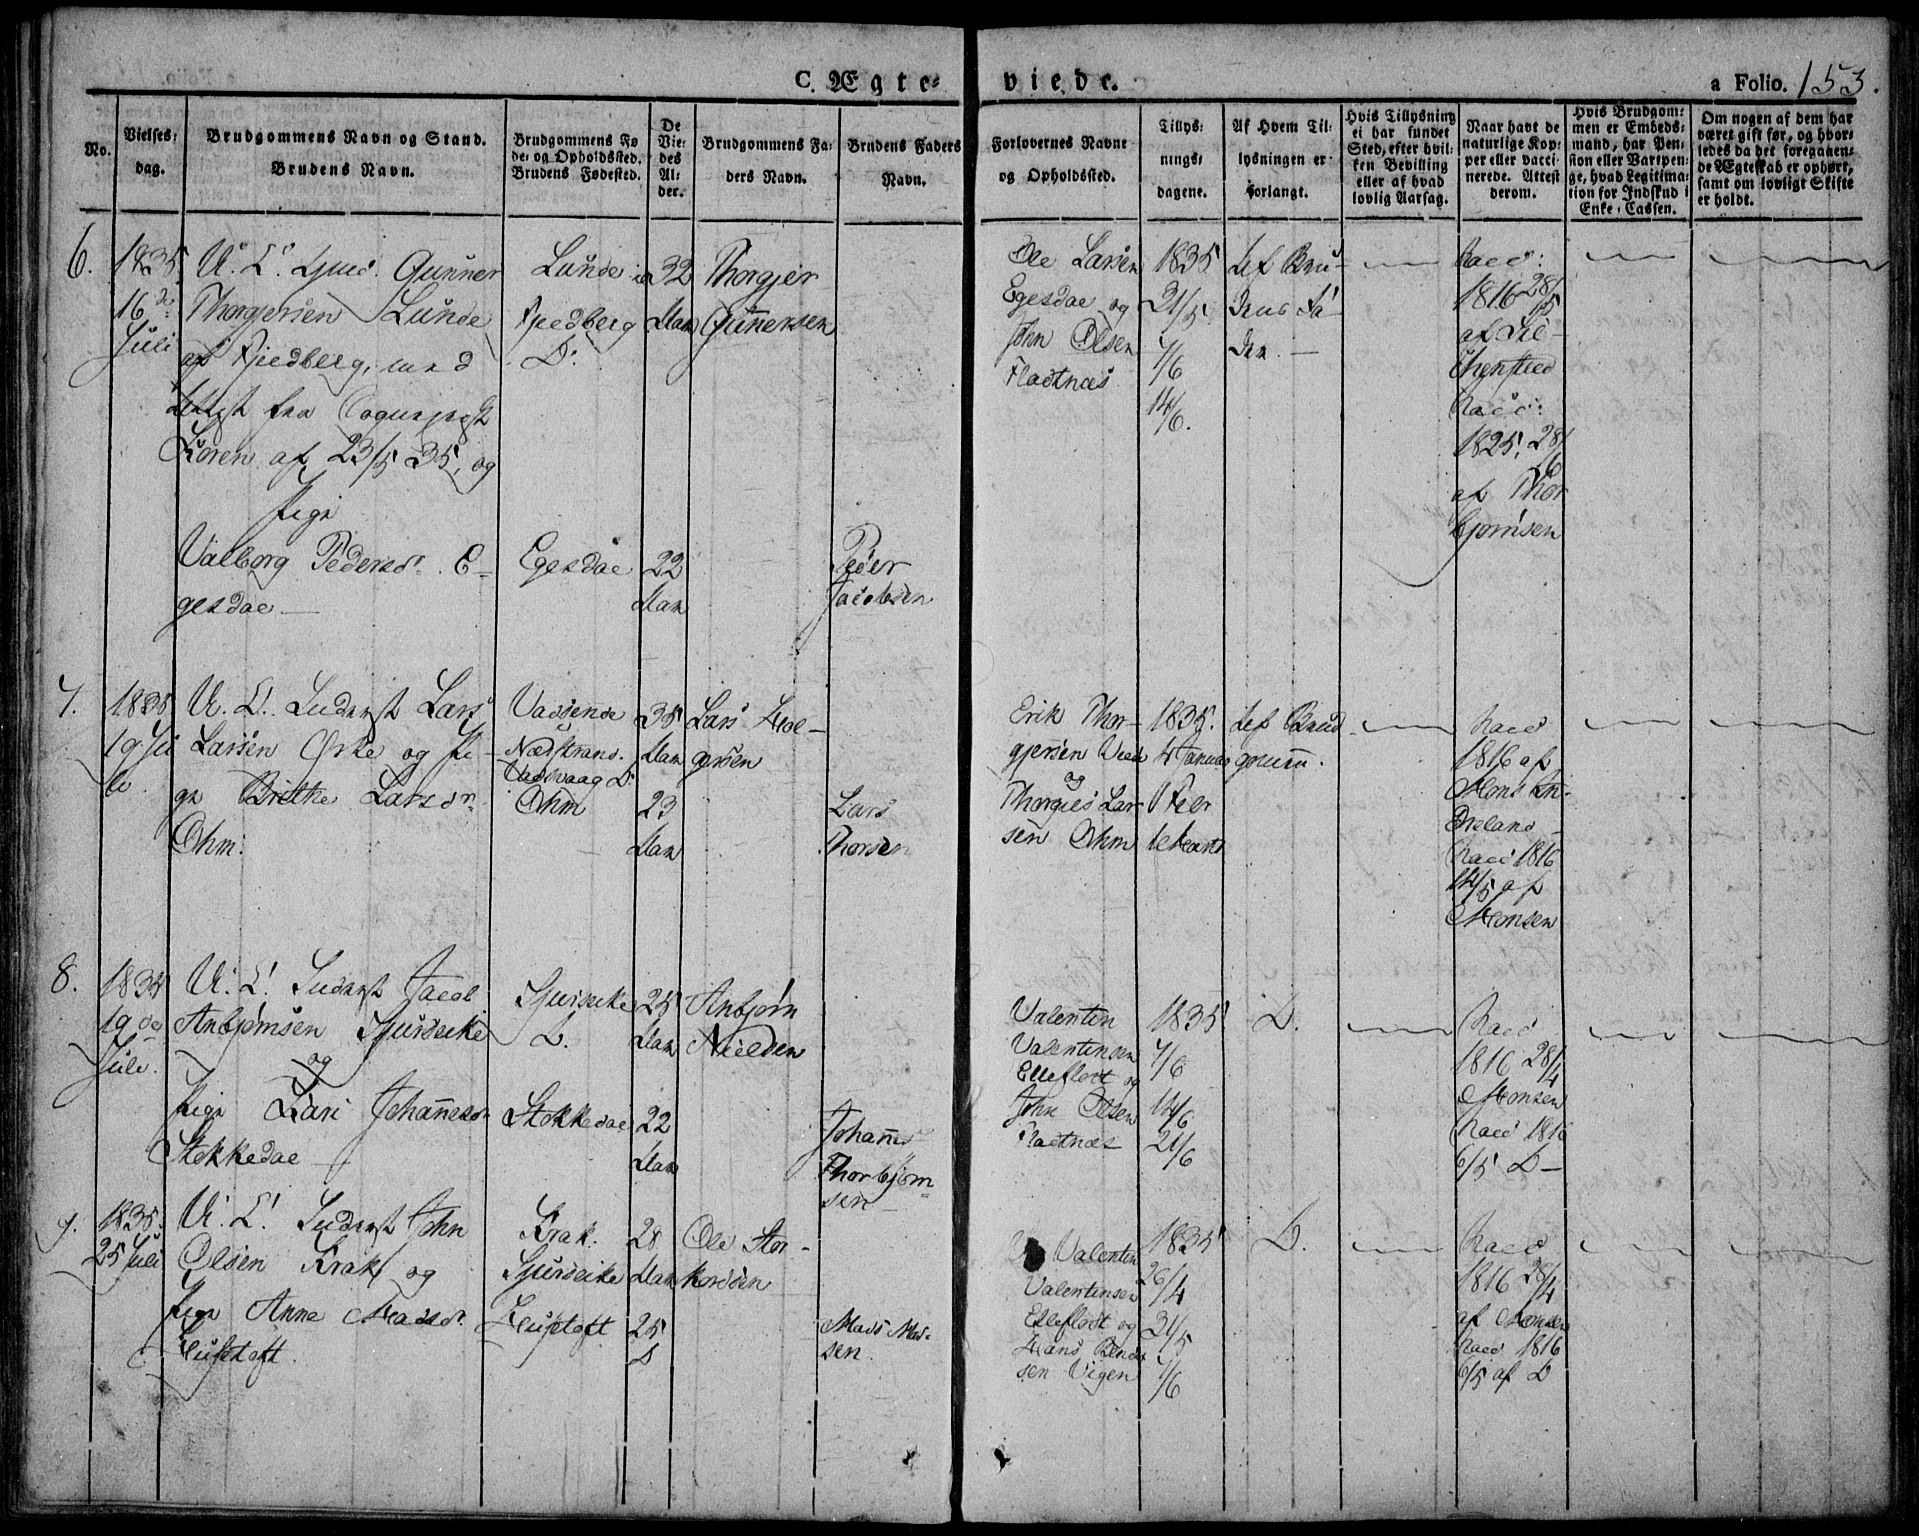 C. Ægte-
viede.
a Folio. 153.
No.
Vielses-
dag.
Brudgommens Navn og Stand.
Brudens Navn.
Brudgommens Fø
de- og Opholdssted.
Brudens Fødested.
De
Vie-
des
Al-
der.
Brudgommens Fa-
ders Navn.
Brudens Faders
Navn.
Forlovernes Navne
og Opholdssted.
Tillys-
nings-
dagene.
Af Hvem Til-
lysningen er
forlangt.
Hvis Tillysning
ei har fundet
Sted, efter hvil-
ken Bevilling
eller af hvad
lovlig Aarsag.
Naar havt de
naturlige Kop-
per eller vacci-
nerede. Attest
derom.
Hvis Brudgom-
men er Embeds-
mand, har Pen-
sion eller Vartpen-
ge, hvad Legitima-
tion for Indskud i
Enke-Cassen.
Om nogen af dem har
været gift før, og hvor-
ledes da det foregaaen-
de Ægteskab er ophørt,
samt om lovligt Skifte
er holdt.
6.
1835
16de
Juli
U. C. Gunner
Thorgjersen Lunde
af Fjedberg, med
Attest fra
Koren af 23/5 35, og
Pige
Valborg Pedersd. E-
gesdae
Lunde
Fjedberg
D:
Egesdae
32
Aar
22
Aar
Thorgjer
Gunnersen
Peder
Jacobsen
Ole Larsen
Egesdae og
John Olsen
Fladtnæs
1835
31/5
7/6
14/6.
Af Bru-
dens Fa-
der
Vacc:
1816 28/5
af
Vacc:
1825, 28/6
af Thor
bjørnsen
7.
1835
19 Ju
li
U. C. Lars
Larsen Ørke og Pi-
ge Brithe Larsdr
Ohm:
Vadsende
Nædstrand.
Vadsvaag D:
Ohm
35
Aar
23
Aar
Lars Hol-
gersen
Lars
Thorsen
Erik Thor-
gjersen
og
Thorgies Lar
sen Ohm
1835.
4 Januar
1 Febr
1 Marts
Af Brud
gomm.
Vacc
1816 af
Mons An-
dreland
Vacc 1816
14/5 af
Monsen
8.
19 de
Juli.
U. C. Jacob
Anbjørnsen Sjurseike
og
Pige Kari Johannesdr
Stokkedae
Sjurseike
D.
Stokkedae
25
Aar
22
Aar
Anbjørn
Nielsen
Johannes
Thorbjørn-
sen
Valentin
Valentinsen
Elleflodt og
John Olsen
Fladtnæs
1835
7/6
14/6
21/6
D.
Vacc
1816 28/4
Monsen
Vacc 1816
6/5 D
9.
1835.
25 Juli
U. C. John
Olsen Krak og
Pige Anne Madsdr.
Hustoft.
Krak.
Sjurseike
Hustoft
28
Aar
25
D
Ole Stor-
korsen
Mads Mad-
sen.
Valentin
Valentinsen
Elleflodt og
Hans Bendt
sen Vigen
1835
26/4
31/5
7/6
D.
Vacc
1816 28/4
af Monsen
Vacc 1816
6/5 af D